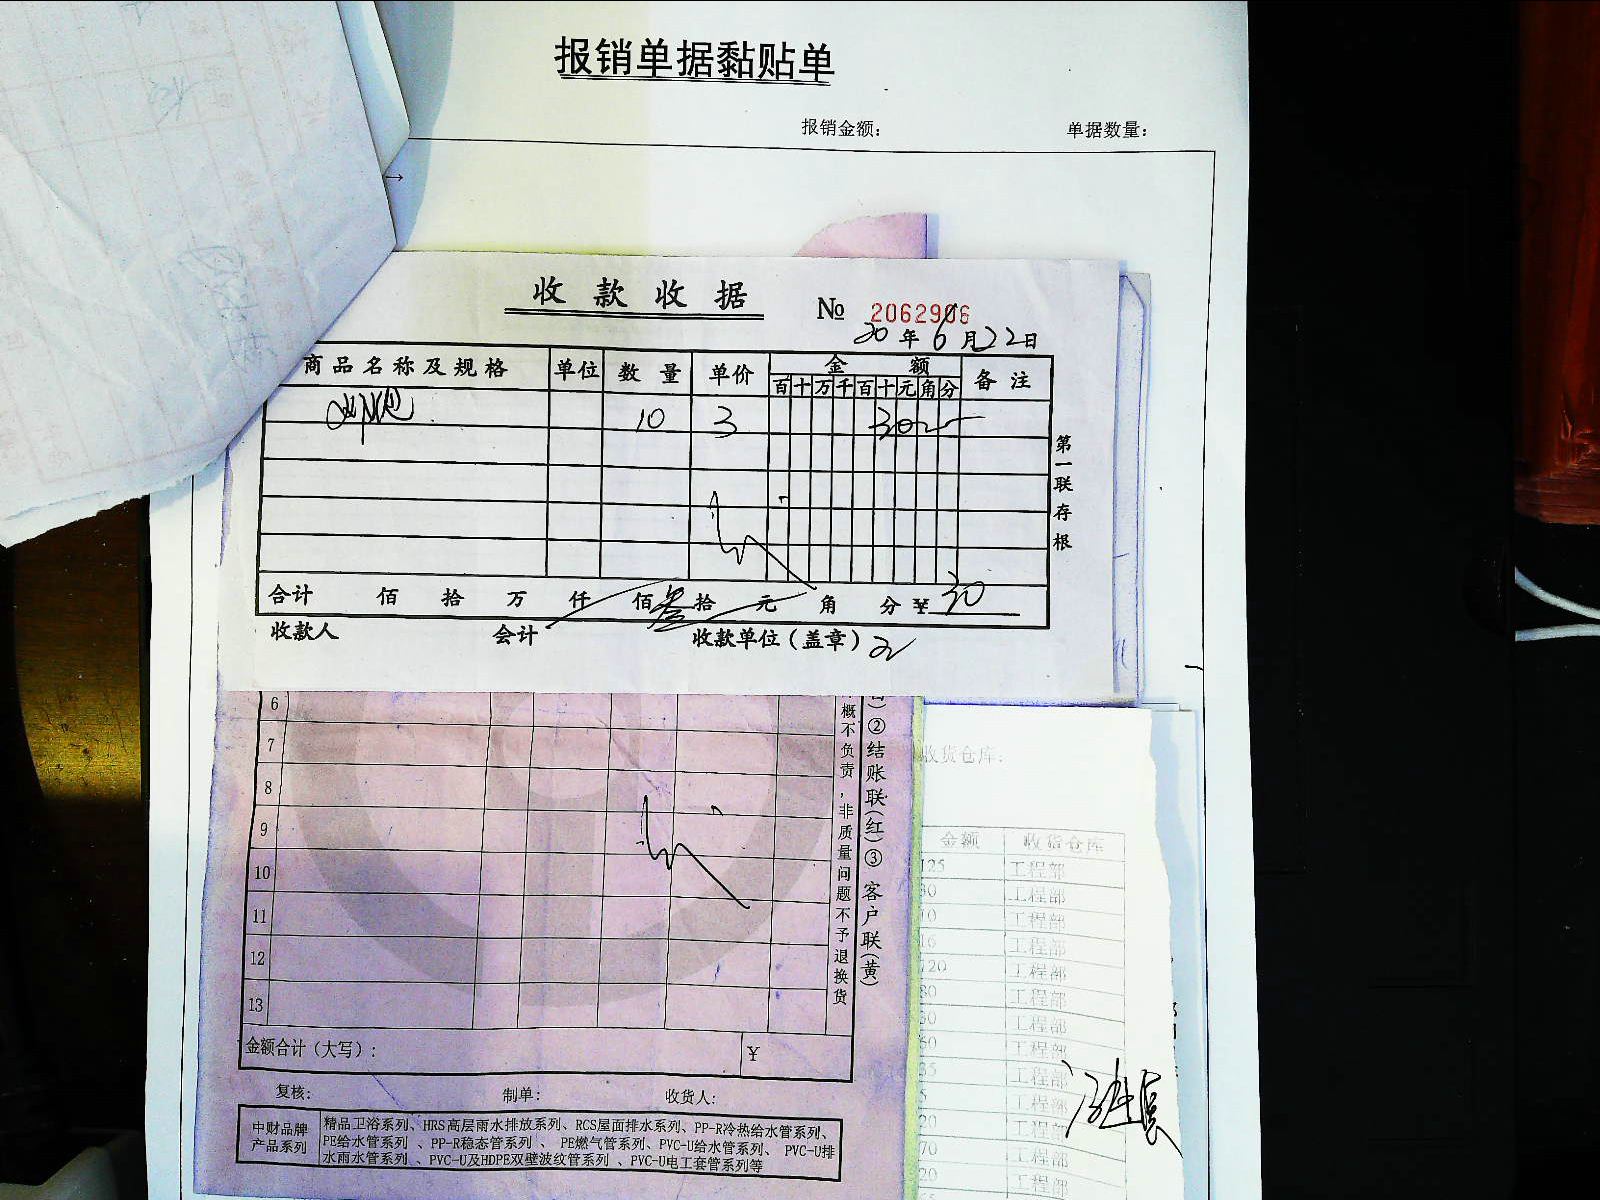 报销单据黏贴单
报销金额：
单据数量：
→
收款收据
№ 2062906
20年6月22日
商品名称及规格 单位 数量 单价 金额 备注
百十万千百十元角分
10 3 30
第一联存根
合计 佰 拾 万 仟 佰叁拾 元 角 分 ¥30
收款人 会计 收款单位（盖章）
6
7
8
9
10
11
12
13
概不负责，非质量问题不予退换货
②结账联（红）③客户联（黄）
金额合计（大写）： ¥
复核： 制单： 收货人：
中财品牌产品系列
精品卫浴系列、HRS高层雨水排放系列、RCS屋面排水系列、PP-R冷热给水管系列、
PE给水管系列、PP-R稳态管系列、PE燃气管系列、PVC-U给水管系列、PVC-U排
水雨水管系列、PVC-U及HDPE双壁波纹管系列、PVC-U电工套管系列等
收货仓库：
金额 收货仓库
125 工程部
30 工程部
10 工程部
16 工程部
120 工程部
80 工程部
30 工程部
50 工程部
35 工程部
5 工程部
20 工程部
70 工程部
20 工程部